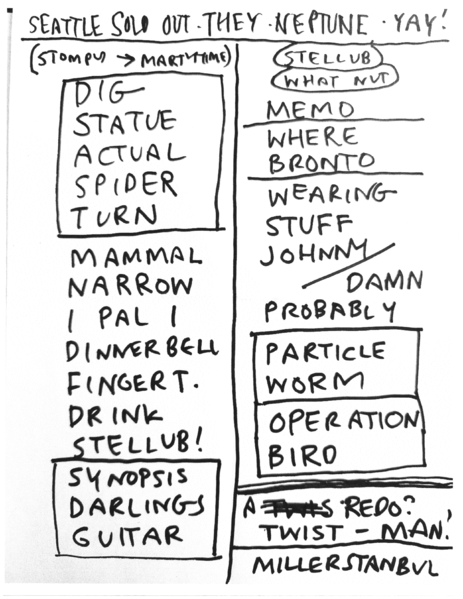 SEATTLE SOLD OUT · THEY · NEPTUNE · YAY!
(STOMPU → MARTYTIME)
DIG
STATUE
ACTUAL
SPIDER
TURN
MAMMAL
NARROW
1 PAL 1
DINNERBELL
FINGERT.
DRINK
STELLUB!
SYNOPSIS
DARLINGS
GUITAR
STELLUB
WHAT NUT
MEMO
WHERE
BRONTO
WEARING
STUFF
JOHNNY
DAMN
PROBABLY
PARTICLE
WORM
OPERATION
BIRD
A REDO?
TWIST - MAN!
MILLERSTANBUL